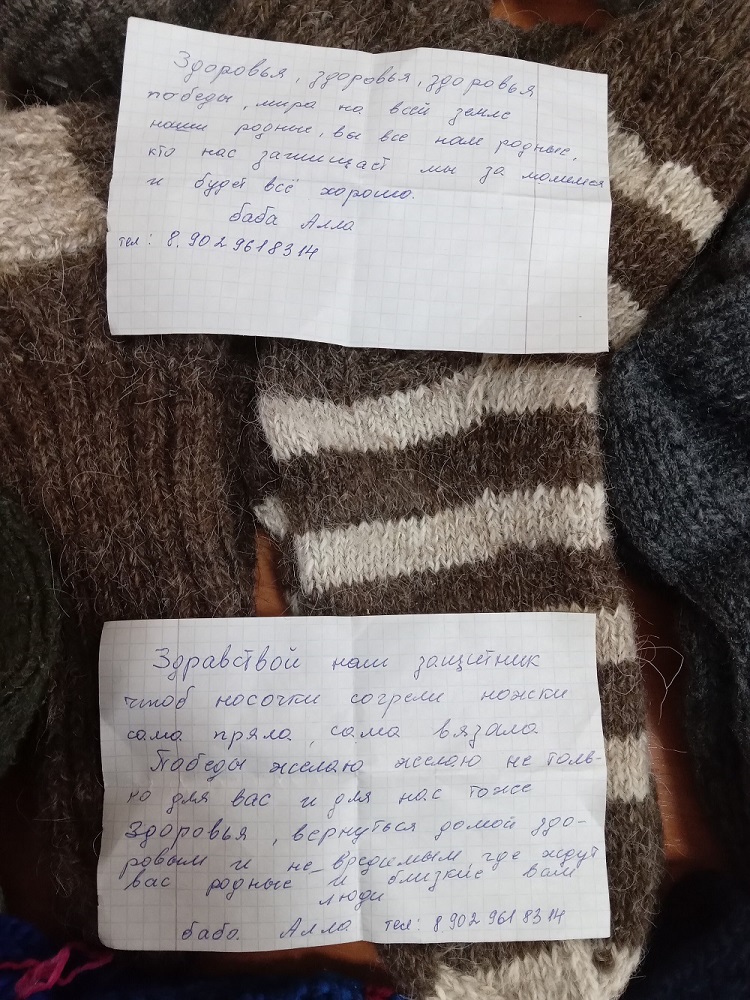 Здоровья, здоровья, здоровья
победы, мира на всей земле
наши родные, вы все нам родные,
кто нас защищает мы за молимся
и будет всё хорошо.
баба Алла
тел: 8.902 961 83 14
Здравствой наш защитник
чтоб носочки согрели ножски
сама пряла, сама вязала
Победы желаю желаю не толь-
ко для вас и для нас тоже
Здоровья, вернуться домой здо-
ровым и не_вредимым, где ждут
вас родные и близкие вам
люди
баба Алла тел: 8 902 961 83 14